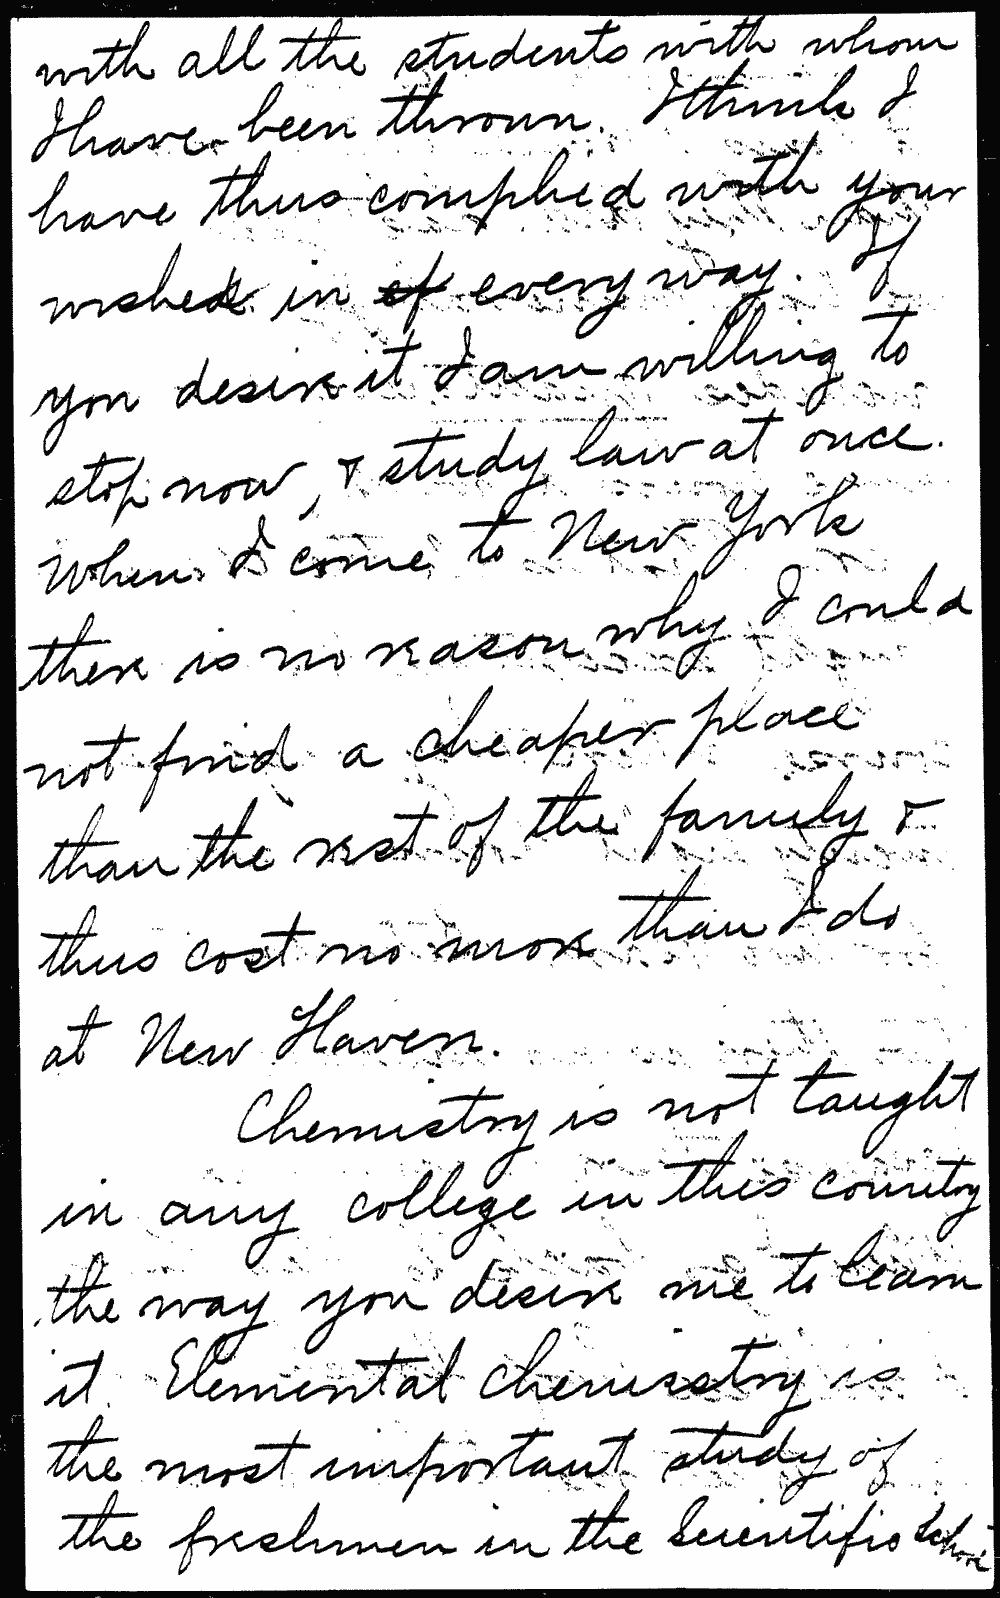 with all the students with whom
I have been thrown. I think I
have thus complied with your
wishes in ef every way. If
you desire it I am willing to
stop now, & study law at once.
When I come to New York
there is no reason why I could
not find a cheaper place
than the rest of the family &
thus cost no more than I do
at New Haven.
Chemistry is not taught
in any college in this country
the way you desire me to learn
it. Elemental chemisstry is
the most important study of
the freshmen in the Scientific School